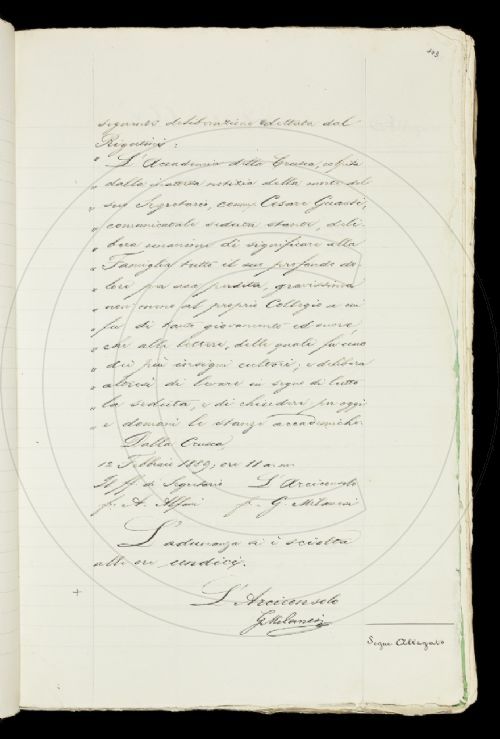 443
seguente deliberazione dettata dal
Rigutini:
" L'Accademia della Crusca, colpita
" dalla inattesa notizia della morte del
" suo Segretario, comm. Cesare Guasti,
" comunicatale seduta stante, deli-
" bera unanime di significare alla
" Famiglia tutto il suo profondo do-
" lore per una perdita, gravissima
" non meno al proprio Collegio a cui
" fu di tanto giovamento ed onore,
" che alle lettere, delle quali fu uno
" dei più insigni cultori; e delibera
" altresì di levare in segno di lutto
" la seduta, e di chiudere per oggi
" e domani le stanze accademiche.
Dalla Crusca,
12 Febbraio 1889, ore 11 a.m.
Il ff. di Segretario L'Arciconsolo
f. A. Alfani f. G. Milanesi
L'adunanza si è sciolta
alle ore undici.
L'Arciconsolo
G. Milanesi
Segue Allegato